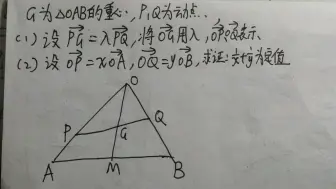 G为△OAB的重心,P,Q为动点..
(1)设PG=λPQ,将OG用λ,OP,OQ表示.
(2)设OP=xOA,OQ=yOB,求证:1/x+1/y为定值
O
P
Q
G
A
M
B